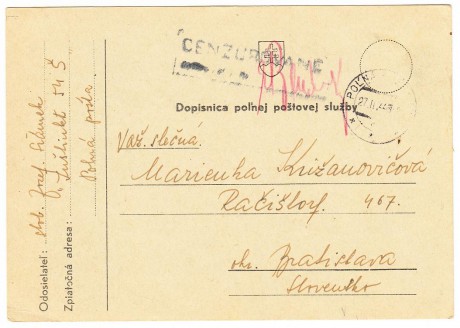 CENZUROVANÉ
Dopisnica poľnej poštovej služby
POĽNÁ
27.II.
Važ. slečná,
Marienka Križanovičová
Račištorf. 467.
okr. Bratislava
Slovensko
Odosielateľ: slob. Jozef
Zpiatočná adresa: 54 S
Poľná pošta